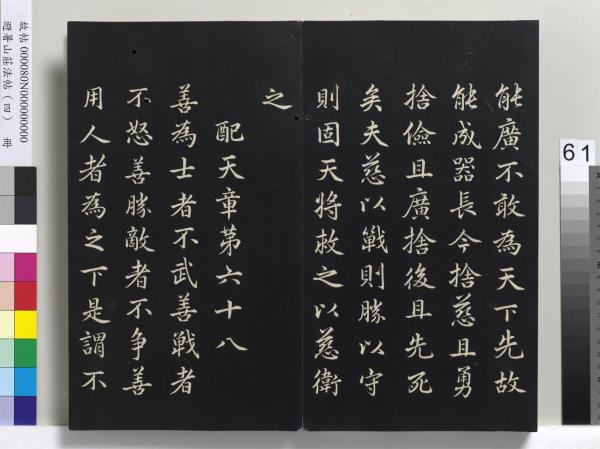 能廣不敢為天下先故
能成器長今捨慈且勇
捨儉且廣捨後且先死
矣夫慈以戰則勝以守
則固天將救之以慈衛
之
配天章第六十八
善為士者不武善戰者
不怒善勝敵者不爭善
用人者為之下是謂不
故帖 000080N000000000
避暑山莊法帖(四) 冊
61